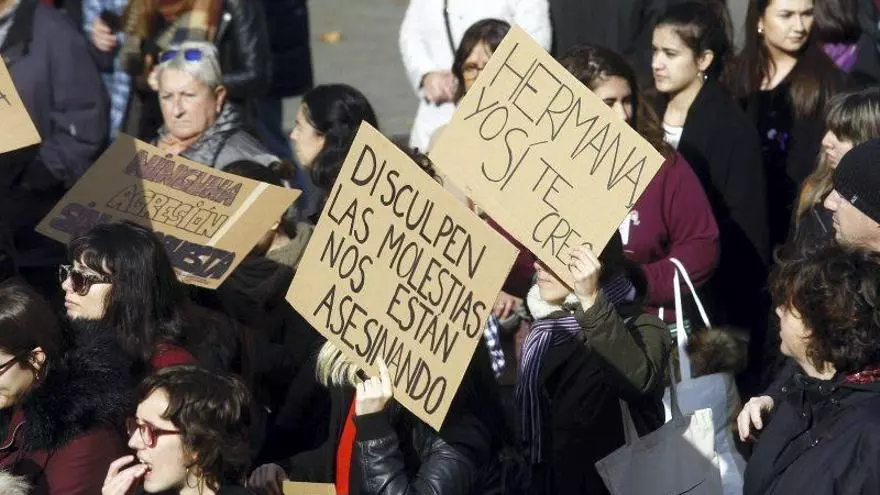 NINGUNA
AGRESIÓN
SIN
RESPUESTA
DISCULPEN
LAS MOLESTIAS
NOS ESTAN
ASESINANDO
HERMANA,
YO SÍ TE
CREO